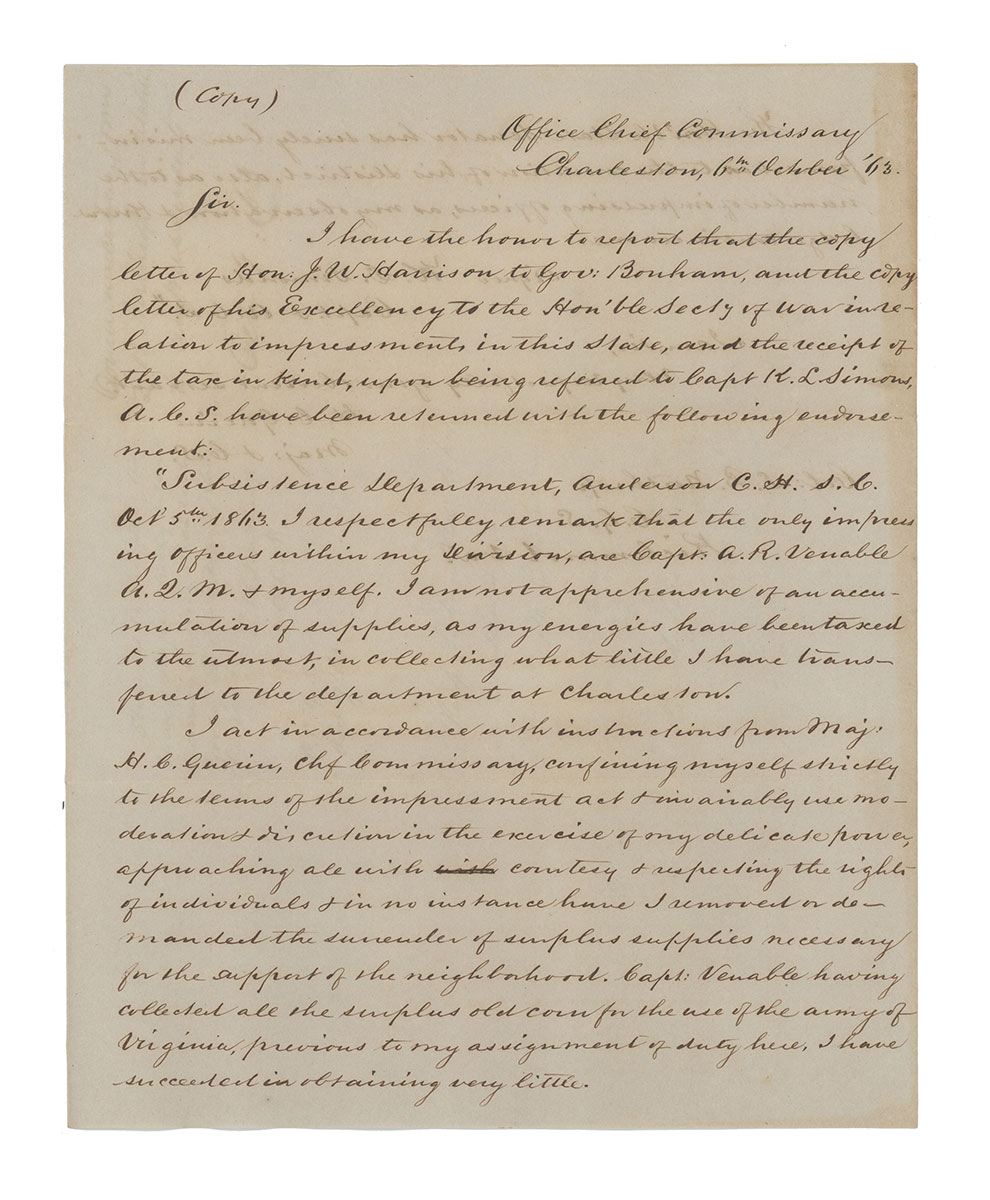 (Copy)
Office Chief Commissary
Charleston, 6th October '63.
Sir.
I have the honor to report that the copy
letter of Hon: J. W. Harrison to Gov: Bonham, and the copy
letter of his Excellency to the Hon'ble Secty of War in re-
lation to impressments in this State, and the receipt of
the tax in kind, upon being referred to Capt K. L Simons,
A. C. S. have been returned with the following endorse-
ment:
"Subsistence Department, Anderson C. H. S. C.
Oct 5th 1863. I respectfully remark that the only impress
ing officers within my Division, are Capt: A. R. Venable
A. Q. M. & myself. I am not apprehensive of an accu-
mulation of supplies, as my energies have been taxed
to the utmost, in collecting what little I have trans-
ferred to the department at Charleston.
I act in accordance with instructions from Maj:
H. C. Guerin, Chf Commissary, confining myself strictly
to the terms of the impressment act & invariably use mo-
deration & discretion in the exercise of my delicate power,
approaching all with with courtesy & respecting the rights
of individuals & in no instance have I removed or de-
manded the surrender of surplus supplies necessary
for the support of the neighborhood. Capt: Venable having
collected all the surplus old corn for the use of the army of
Virginia, previous to my assignment of duty here, I have
succeeded in obtaining very little.